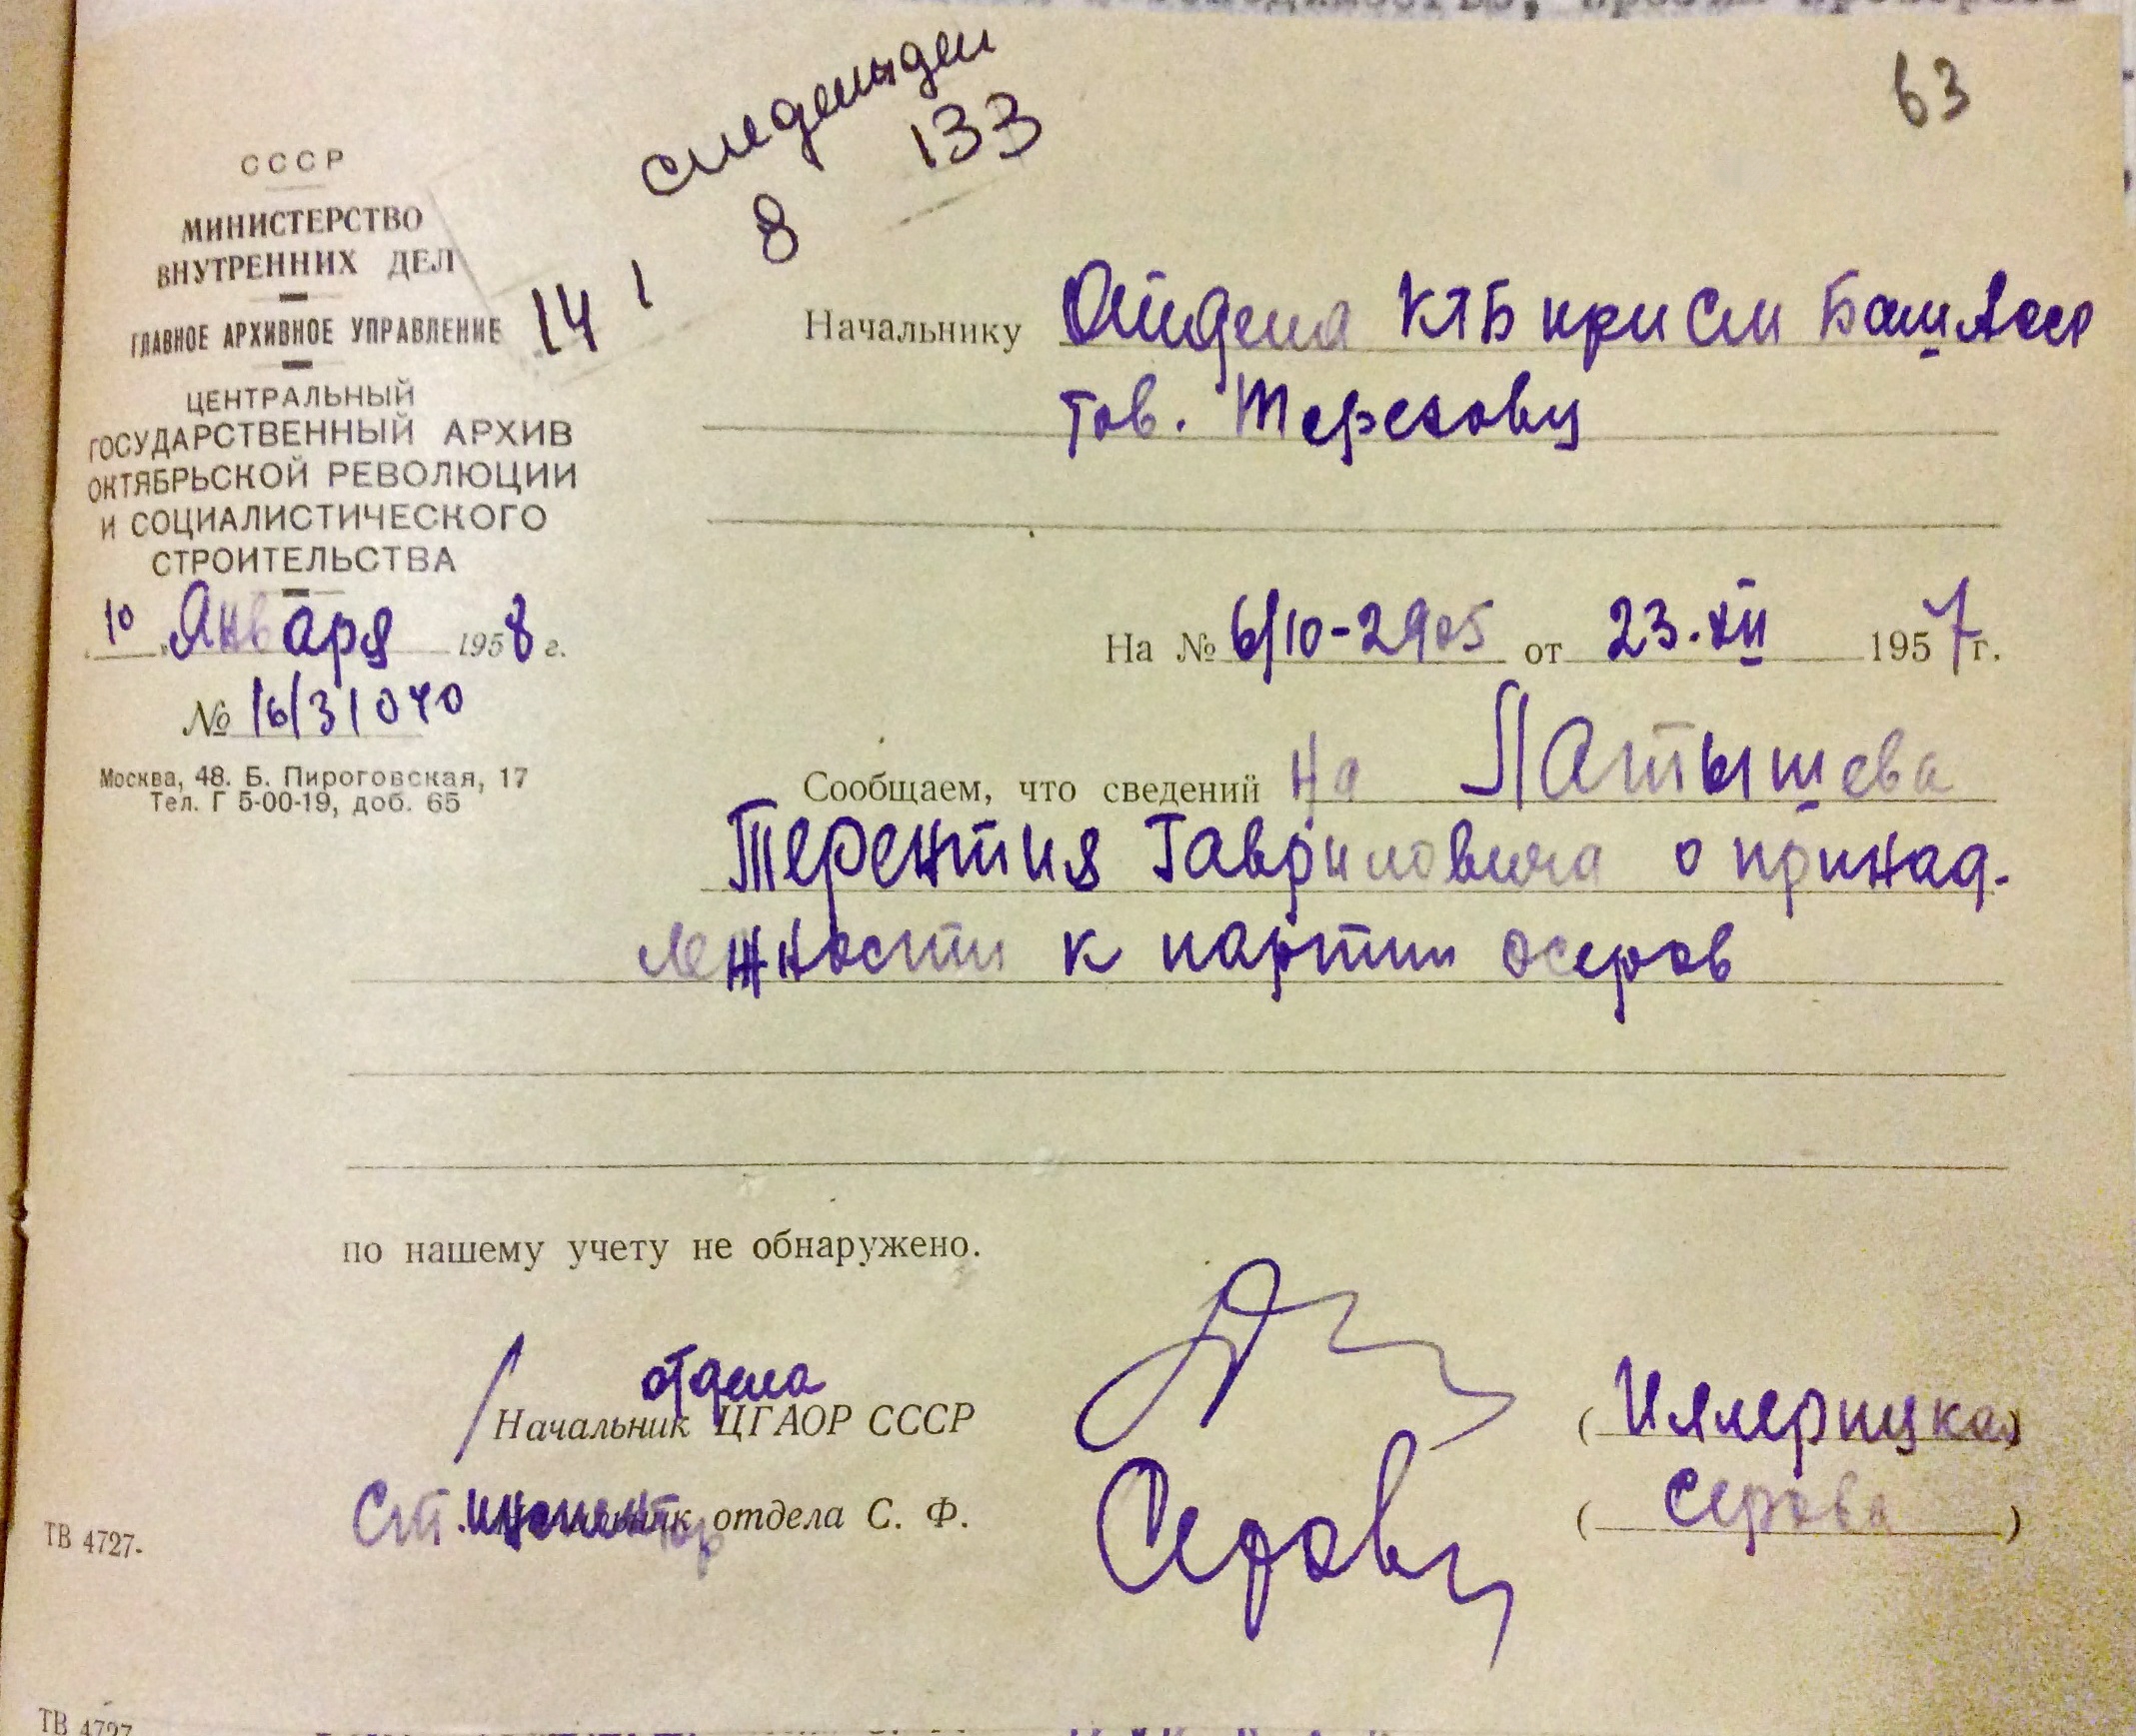 63
133
8
14 1
СССР
МИНИСТЕРСТВО
ВНУТРЕННИХ ДЕЛ
ГЛАВНОЕ АРХИВНОЕ УПРАВЛЕНИЕ
ЦЕНТРАЛЬНЫЙ
ГОСУДАРСТВЕННЫЙ АРХИВ
ОКТЯБРЬСКОЙ РЕВОЛЮЦИИ
И СОЦИАЛИСТИЧЕСКОГО
СТРОИТЕЛЬСТВА
10 Января 1958 г.
№ 16/31040
Москва, 48. Б. Пироговская, 17
Тел. Г 5-00-19, доб. 65
Начальнику Отдела КГБ при См БашАсср
тов. Терехову
На № 6/10-2905 от 23.XII 1957г.
Сообщаем, что сведений на Латышева
Терентия Гавриловича о принад-
лежности к партии эсеров
по нашему учету не обнаружено.
отдела
Начальник ЦГАОР СССР
Ст. инспектор отдела С. Ф. (Серова)
Серову
ТВ 4727.
ТВ 4727